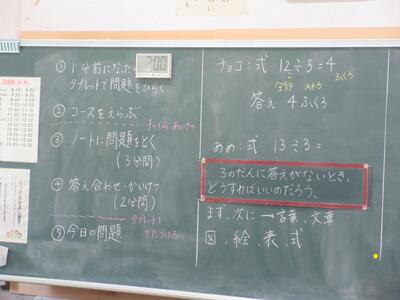 ① 1分前になったら
タブレットで問題をひらく
200
② コースをえらぶ
チャイム あいさつ
③ ノートに問題をとく
(3分間)
④ 答え合わせ・かいけつ
(2分間)
タブレットを
かたづける
⑤ 今日の問題
チョコ:式 12÷3=4
全部 入れる ふくろ
答え 4ふくろ
あめ:式 13÷3=
3のだんに答えがないとき、
どうすればいいのだろう。
まず、次に→言葉、文章
図、絵、表、式